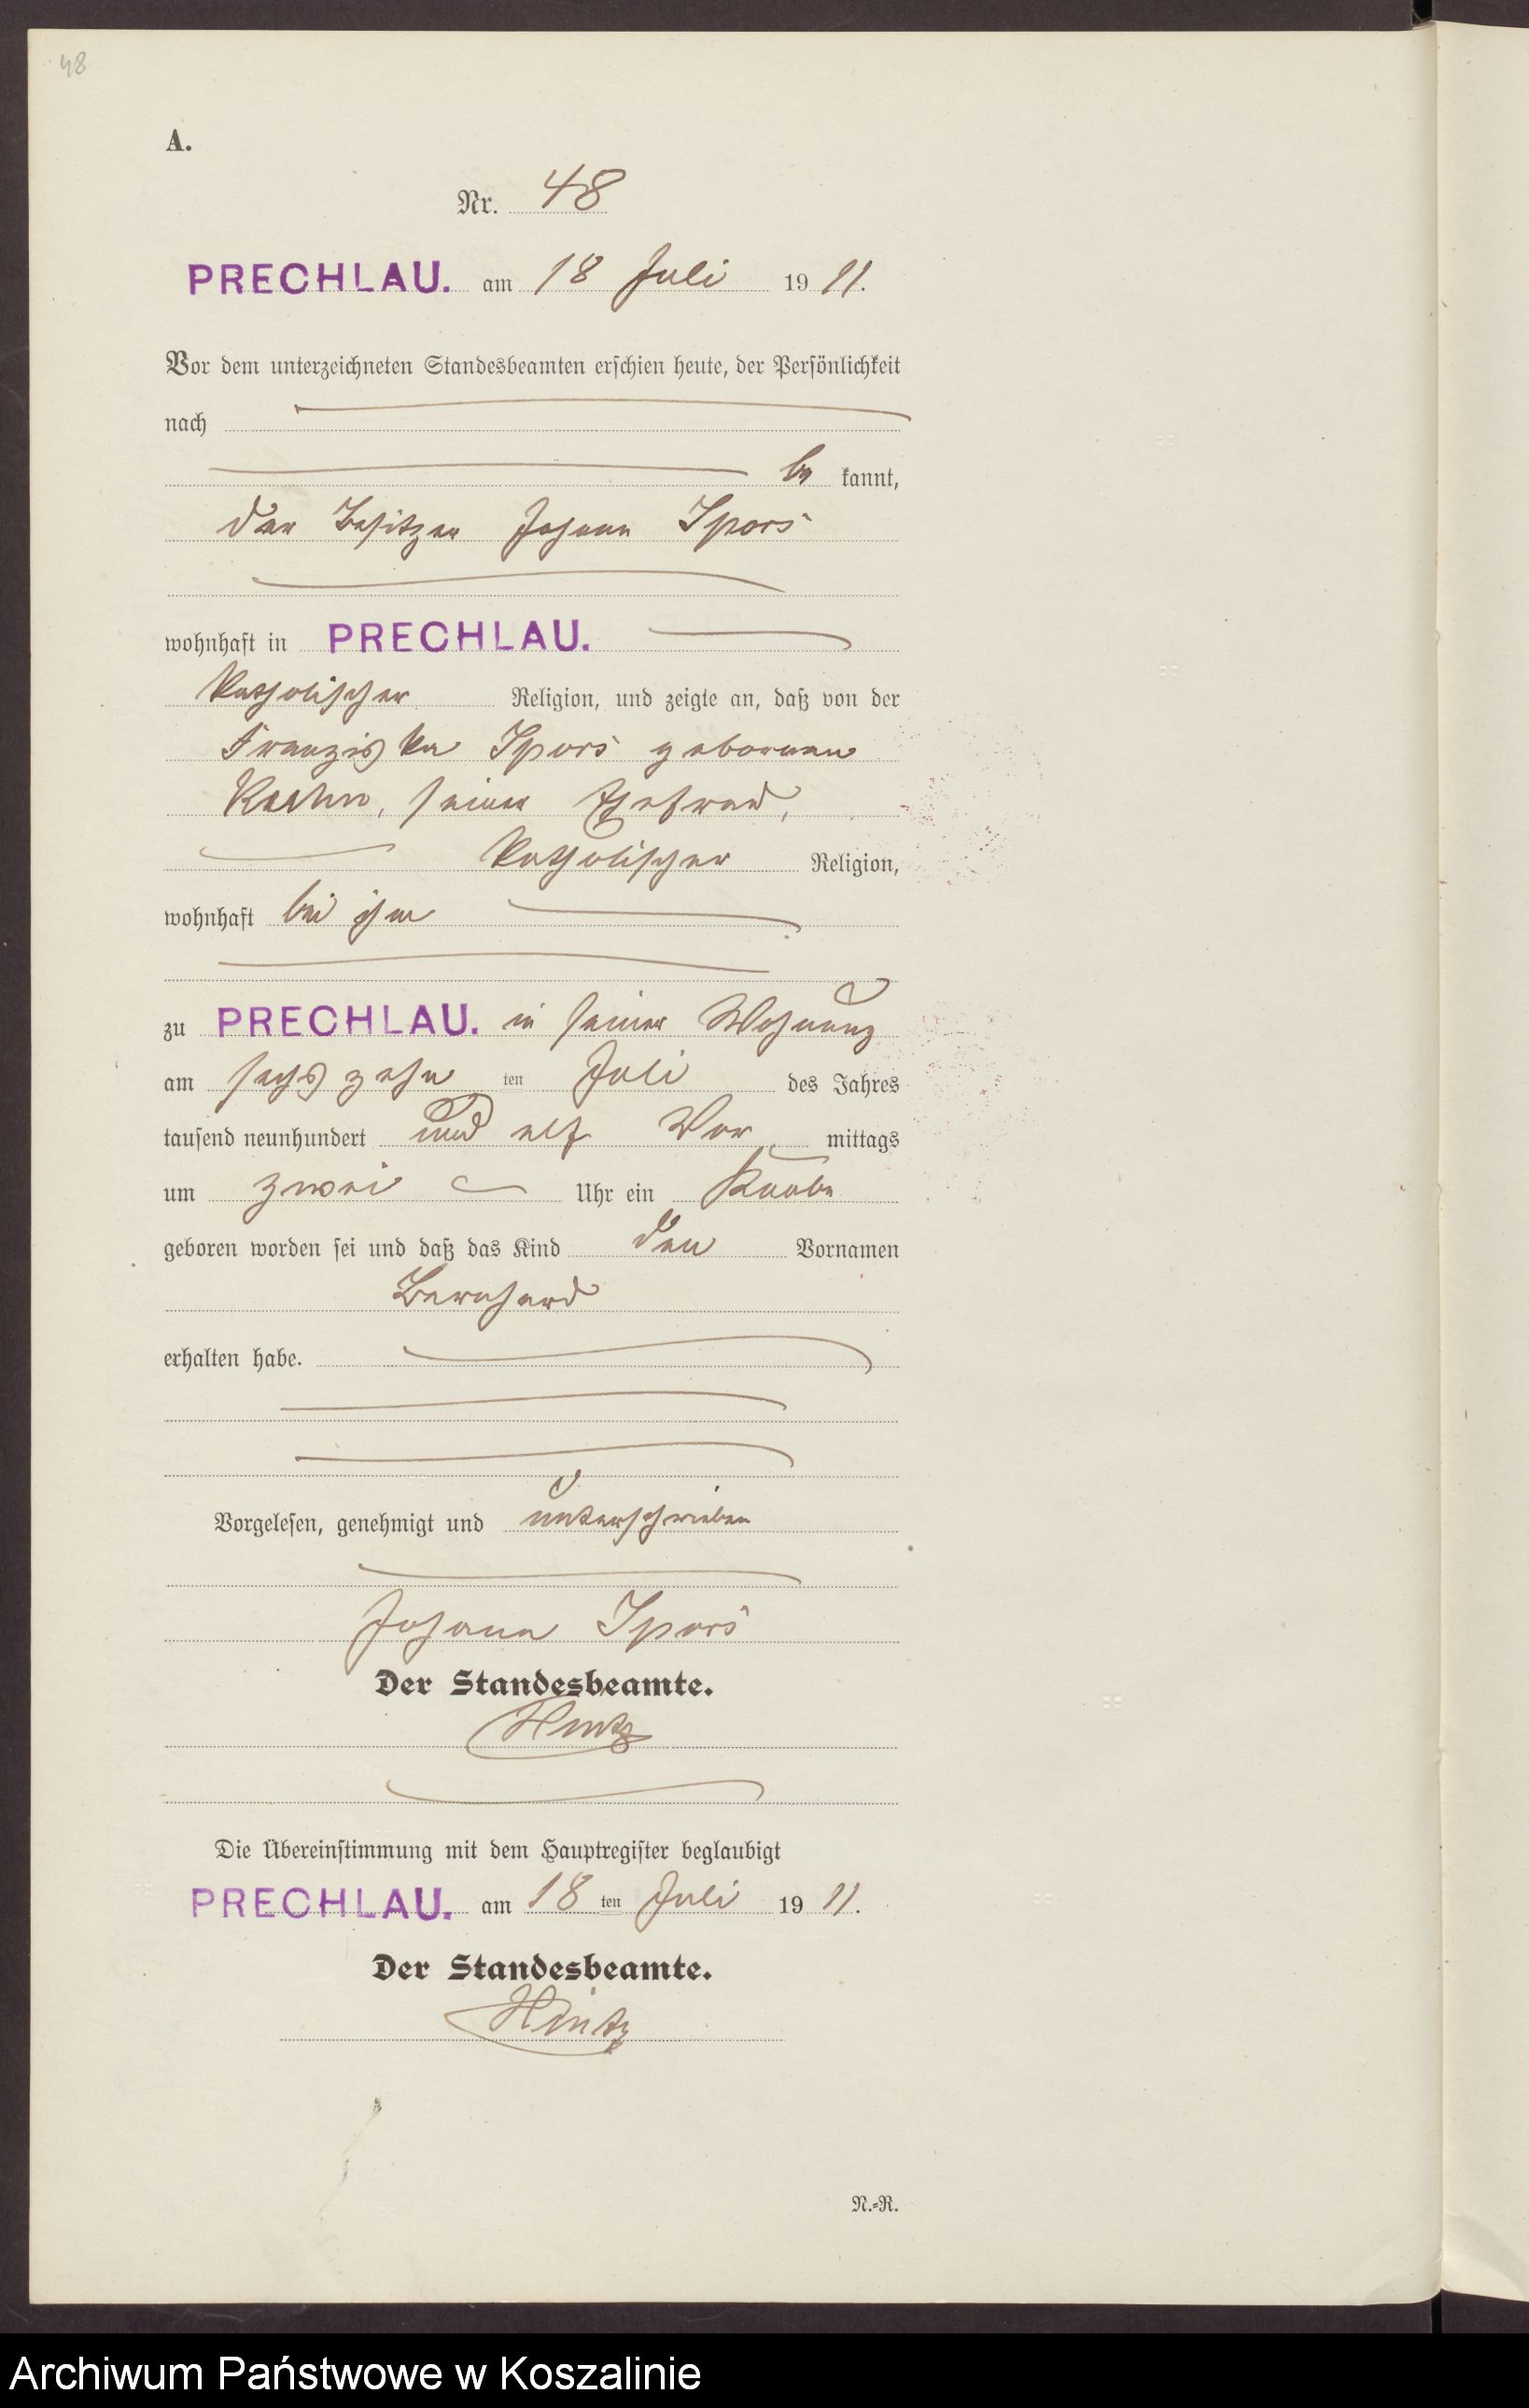 48
A.
Nr. 48
PRECHLAU. am 18 Juli 19 11.
Vor dem unterzeichneten Standesbeamten erschien heute, der Persönlichkeit
nach
be kannt,
der Besitzer Johann Spors
wohnhaft in PRECHLAU.
katholischer Religion, und zeigte an, daß von der
Franziska Spors geborenen
seiner Ehefrau,
katholischer Religion,
wohnhaft bei ihm
zu PRECHLAU. in seiner Wohnung
am sechszehn ten Juli des Jahres
tausend neunhundert und elf Vor mittags
um zwei Uhr ein Knabe
geboren worden sei und daß das Kind den Vornamen
Bernhard
erhalten habe.
Vorgelesen, genehmigt und unterschrieben
Johann Spors
Der Standesbeamte.
Hintz
Die Übereinstimmung mit dem Hauptregister beglaubigt
PRECHLAU. am 18 ten Juli 19 11.
Der Standesbeamte.
Hintz
N.=R.
Archiwum Państwowe w Koszalinie